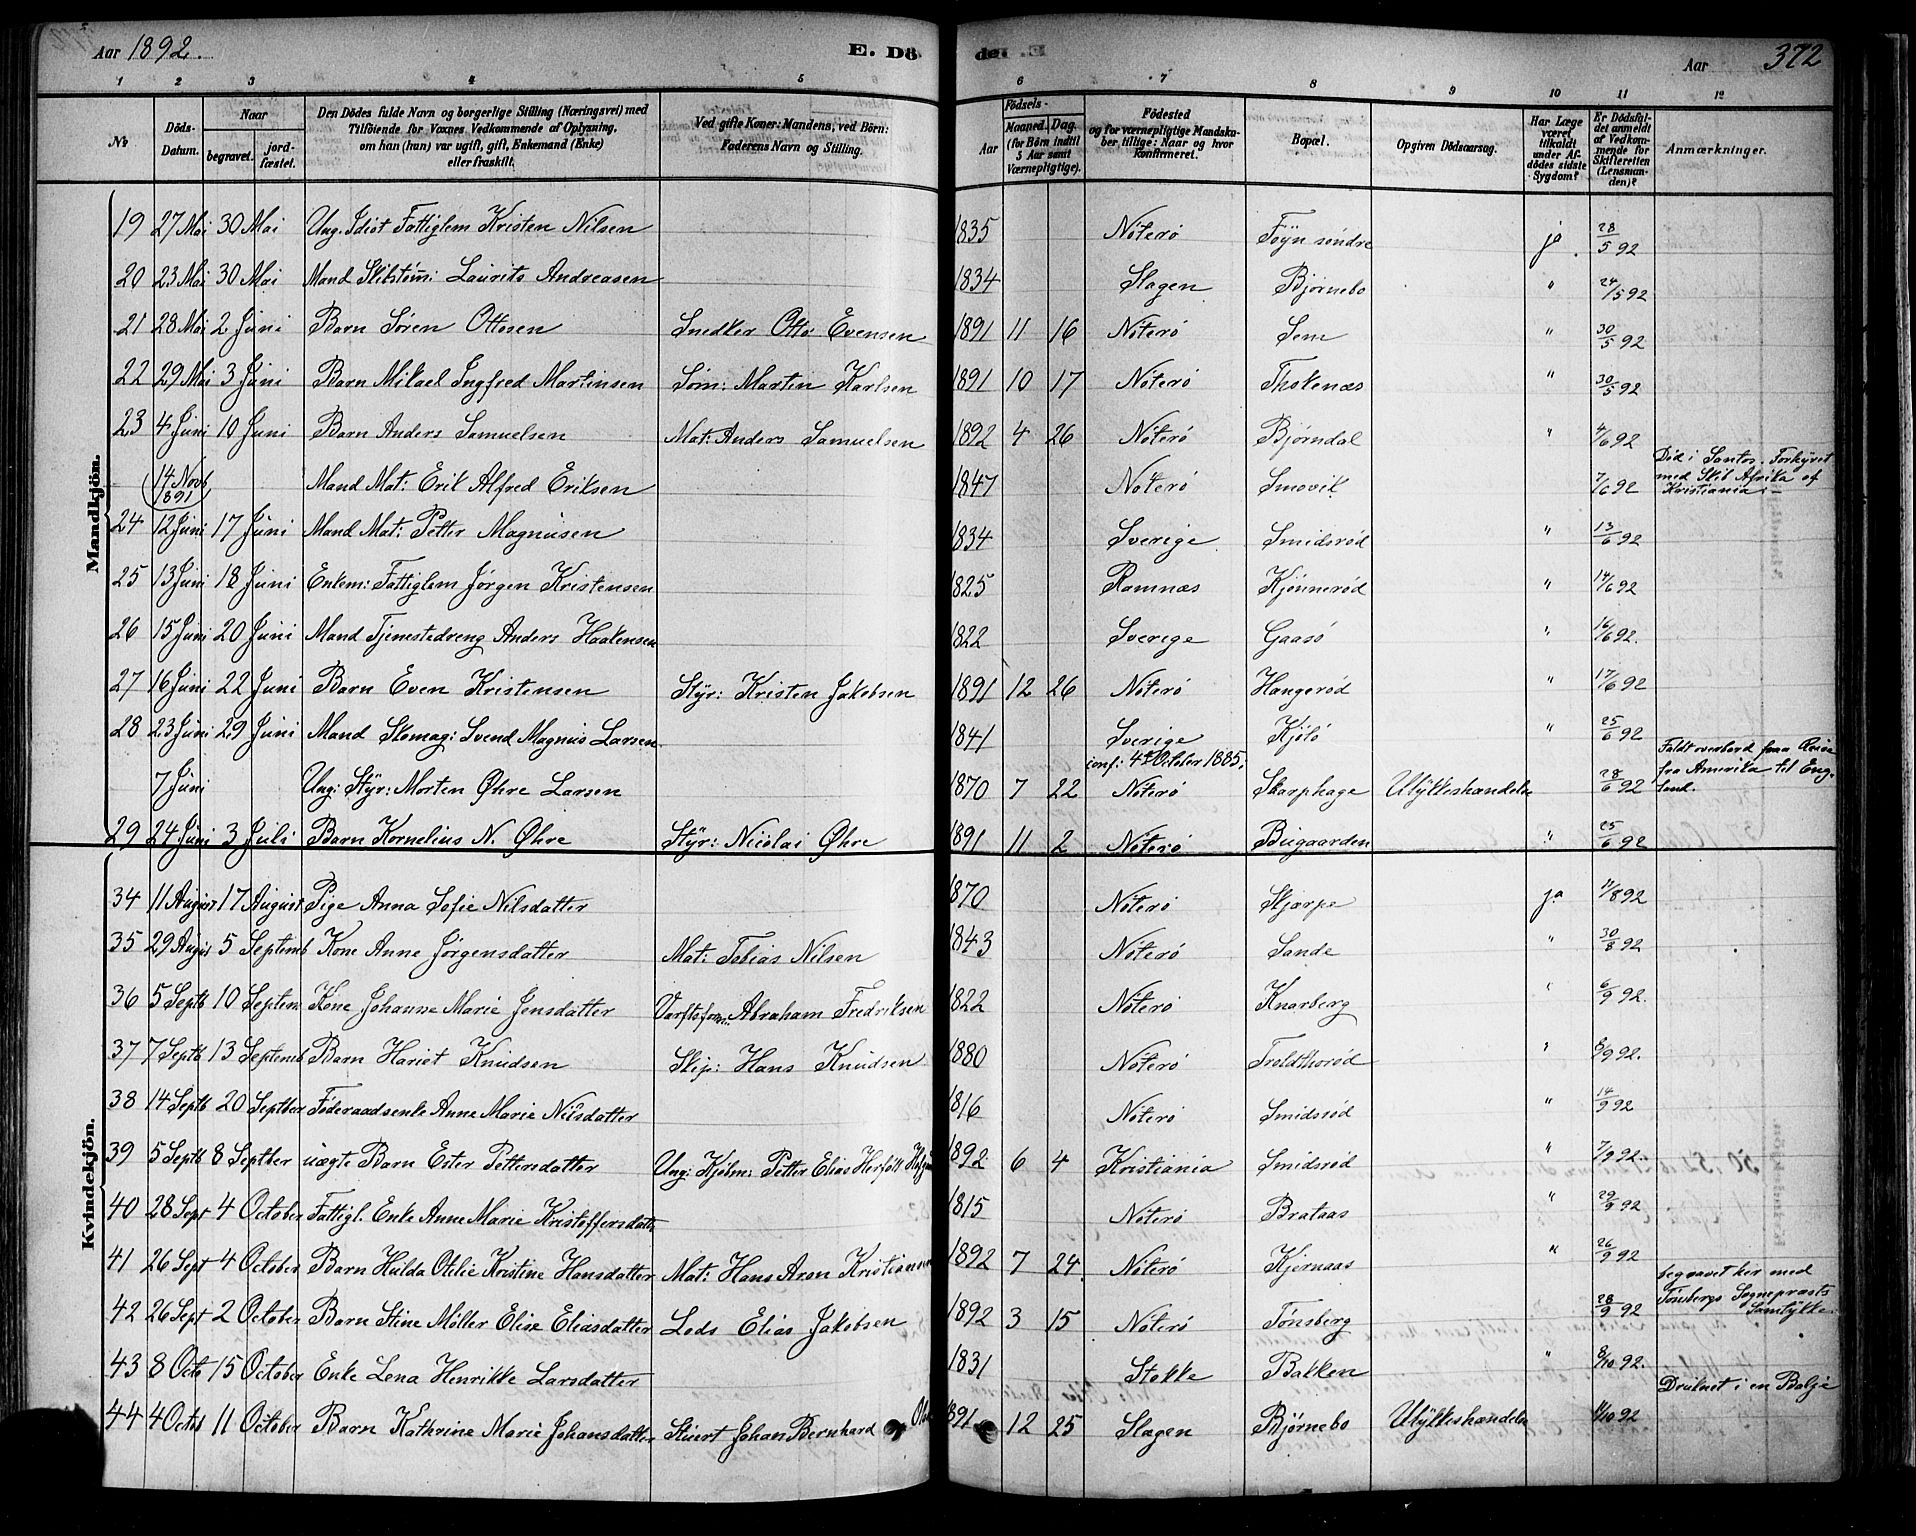 Aar 1892.
E. Dö
de:
Aar
372
1 2 3 4 5 6 7 8 9 10 11 12
No
Döds-Datum.
Naar
begravet.
jord-fæstet.
Den Dödes fulde Navn og borgerlige Stilling (Næringsvei) med
Tilföiende for Voxnes Vedkommende af Oplysning,
om han (hun) var ugift, gift, Enkemand (Enke)
eller fraskilt.
Ved gifte Koner: Mandens, ved Börn:
Faderens Navn og Stilling.
Födsels-
Aar
Maaned. Dag.
(for Börn indtil
5 Aar samt
Værnepligtige).
Födested
og for værnepligtige Mandskaber, tillige: Naar og hvor
Konfirmeret.
Bopæl.
Opgiven Dödsaarsag.
Har Læge
været
tilkaldt
under Afdödes sidste
Sygdom?
Er Dödsfaldet anmeldt
af Vedkommende for
Skifteretten
(Lensmanden)?
Anmærkninger.
Mandkjön.
19 27 Mai 30 Mai Ung. Idiot Fattiglem Kristen Nilsen 1835 Nöterö Föyn söndre ja 28/5 92
20 23 Mai 30 Mai Mand Skibstöm: Laurits Andreasen 1834 Slagen Bjørnebo " 24/5 92
21 28 Mai 2 Juni Barn Søren Ottosen Snedker Otto Evensen 1891 11 16 Nöterö Sem " 30/5 92
22 29 Mai 3 Juni Barn Mikael Ingfred Martinsen Søm: Martin Karlsen 1891 10 17 Nöterö Thokenæs " 30/5 92
23 4 Juni 10 Juni Barn Anders Samuelsen Mat: Anders Samuelsen 1892 4 26 Nöterö Bjørndal " 4/6 92
14 Novb 1891 Mand Mat: Erik Alfred Eriksen 1847 Nöterö Smovik 7/6 92 Død i Santos. Forhyret
med Skib Afrika af
Kristiania
24 12 Juni 17 Juni Mand Mat: Petter Magnusen 1834 Sverige Smidsrød " 13/6 92
25 13 Juni 18 Juni Enkem: Fattiglem Jørgen Kristensen 1825 Ramnæs Kjønnerød " 14/6 92
26 15 Juni 20 Juni Mand Tjenestedreng Anders Haakensen 1822 Sverige Gaasö " 16/6 92.
27 16 Juni 22 Juni Barn Even Kristensen Styr: Kristen Jakobsen 1891 12 26 Nöterö Hangerød " 17/6 92
28 23 Juni 29 Juni Mand Skomag: Svend Magnus Larsen 1841 Sverige Kjölö " 25/6 92
conf: 4 October 1885.
7 Juni Ung: Styr: Morten Øhre Larsen 1870 7 22 Nöterö Skarphage Ulykkeshændelse 28/6 92 Faldt overbord paa Reise
fra Amerika til England.
29 24 Juni 3 Juli Barn Kornelius N. Øhre Styr: Nicolai Øhre 1891 11 2 Nöterö Bugaarden " 25/6 92
Kvindekjön.
34 11 August 17 August Pige Anna Sofie Nilsdatter 1870 Nöterö Skjærpe ja 11/8 92
35 29 August 5 Septemb Kone Anne Jørgensdatter Mat: Tobias Nilsen 1843 Nöterö Sande " 30/8 92
36 5 Septb 10 Septem Kone Johanne Marie Jensdatter Værftsform: Abraham Fredriksen 1822 Nöterö Knarberg " 6/9 92.
37 7 Septb 13 Septemb Barn Hariet Knudsen Skip: Hans Knudsen 1880 Nöterö Troldthorød " 8/9 92.
38 14 Septb 20 Septber Føderaadsenke Anne Marie Nilsdatter 1816 Nöterö Smidsrød " 14/9 92
39 5 Septb 8 Septber uægte Barn Ester Pettersdatter Ung: Kjøbm: Petter Elias 1892 6 4 Kristiania Smidsrød " 7/9 92.
40 28 Sept 4 October Fattigl. Enke Anne Marie Kristoffersdatter 1815 Nöterö Brataas " 29/9 92
41 26 Sept 4 October Barn Hulda Otilie Kristine Hansdatter Mat: Hans Aron Kristiansen 1892 7 24 Nöterö Kjernaas " 26/9 92
42 26 Sept 2 October Barn Stine Møller Elise Eliasdatter Lods Elias Jakobsen 1892 3 15 Nöterö Tønsberg 28/9 92 begravet her med
Tønsbergs Sogneprests
Samtykke.
43 8 Octo 15 October Enke Lena Henrikke Larsdatter 1831 Stokke Bakken " 8/10 92.
44 4 Octob 11 October Barn Kathrine Marie Johansdatter Stuert Johan Bernhard 1891 12 25 Slagen Bjørnebo Ulykkeshændelse 92 Druknet i en Balje